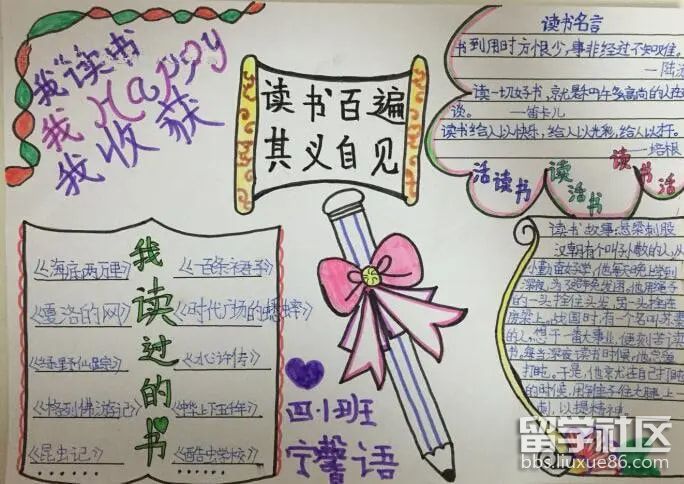 我"读书
我Happy
我收获
读书百遍
其义自见
读书名言
书到用时方恨少,事非经过不知难。
—陆
读一切好书,就是和许多高尚的人在
谈。 —笛卡儿
读书给人以快乐,给人以光彩,给人以才干。
—培根
活读书 读活书 读书活
我读过的书
《海底两万里》
《一百条裙子》
《夏洛的网》
《时代广场的蟋蟀》
《绿野仙踪》
《水浒传》
《格列佛游记》
《中华上下五千年》
《昆虫记》
《酷虫学校》
四小班
宁馨语
读书故事:悬梁刺股
汉朝有个叫孙敬的人,从
小勤奋好学,他每天晚上学到
深夜,为了避免发困,他用绳子
的一头拴住头发,另一头拴在
房梁上。战国时,有个名叫苏秦
的人,想干一番大事业,便刻苦读
书,每当深夜读书时候,他总
打盹。于是,他
的时候,用锥子往大腿上一
刺,以提精神。
留学社区
bbs.liuxue86.com